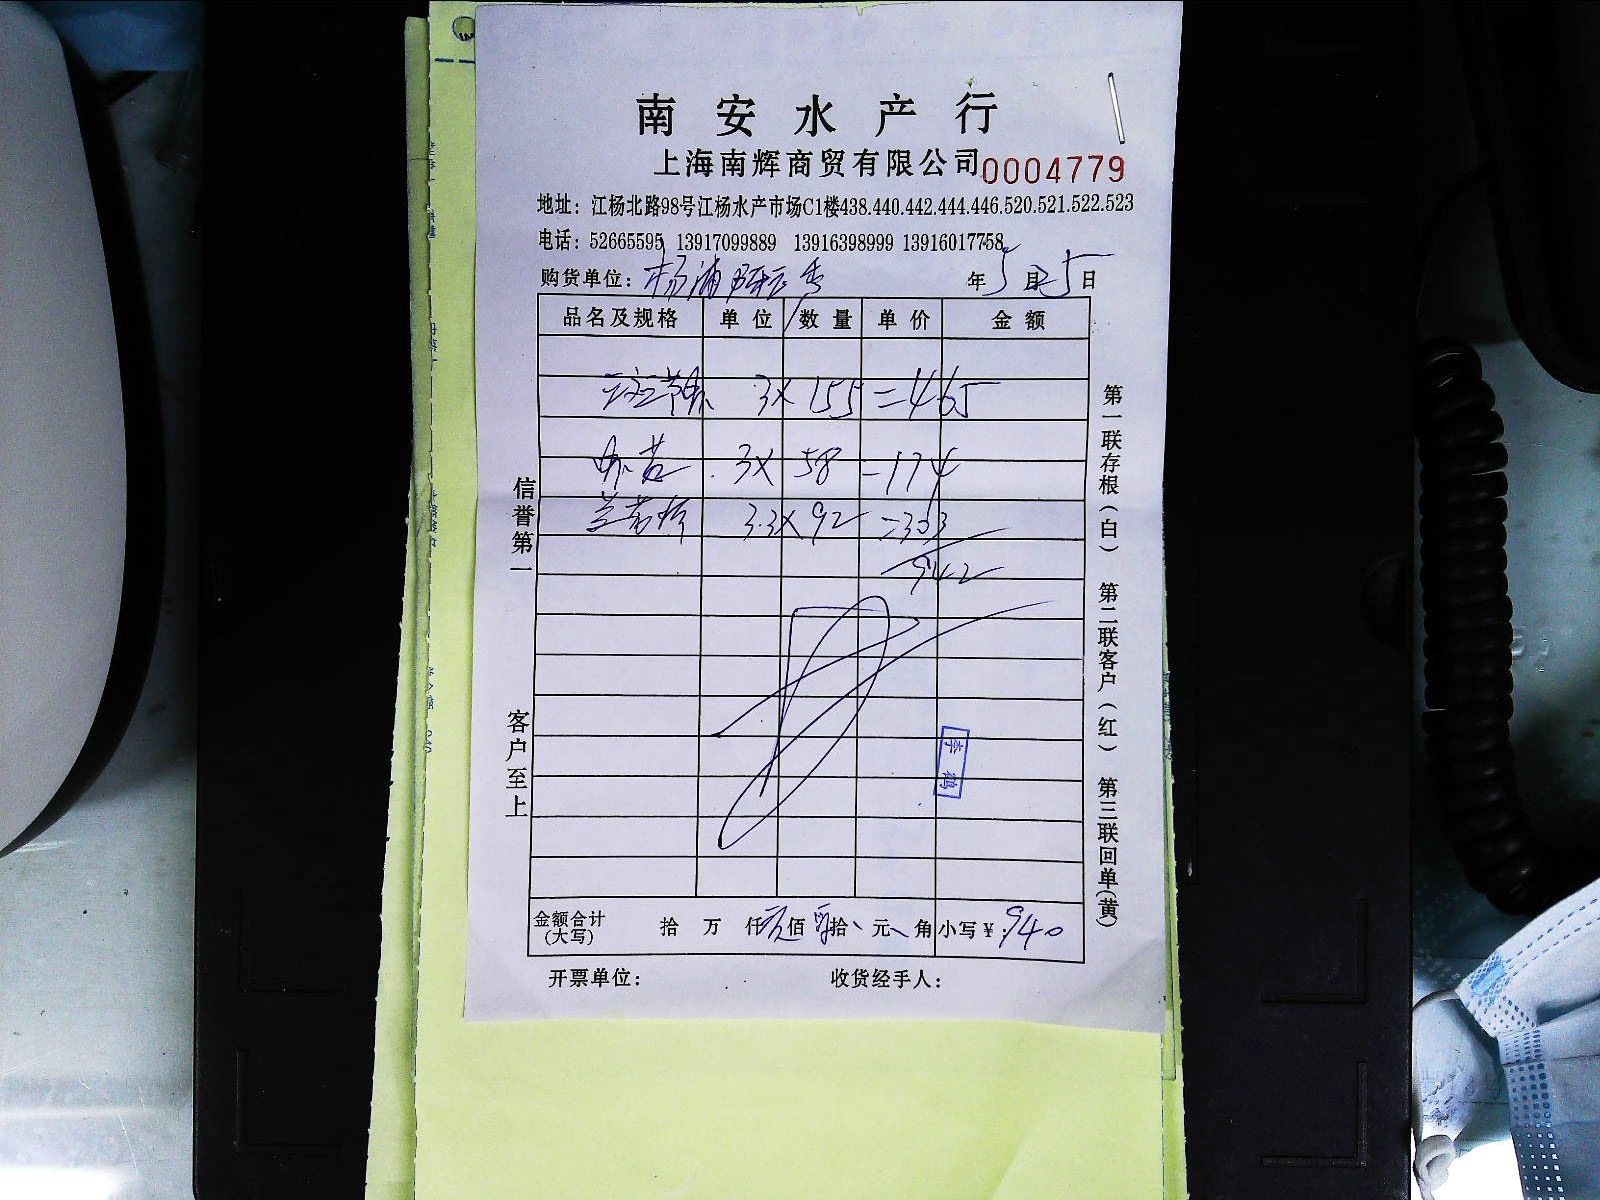 南安水产行
上海南辉商贸有限公司 0004779
地址：江杨北路98号江杨水产市场C1楼438.440.442.444.446.520.521.522.523
电话：52665595 13917099889 13916398999 13916017758
购货单位：杨浦 年5月25日
品名及规格 单位 数量 单价 金额
3×155=465
3×58=174
3.3×92=303
942
金额合计(大写) 拾 万 仟 佰 拾 元 角 小写￥：940
开票单位： 收货经手人：
信誉第一
客户至上
第一联存根(白) 第二联客户(红) 第三联回单(黄)
李鹤